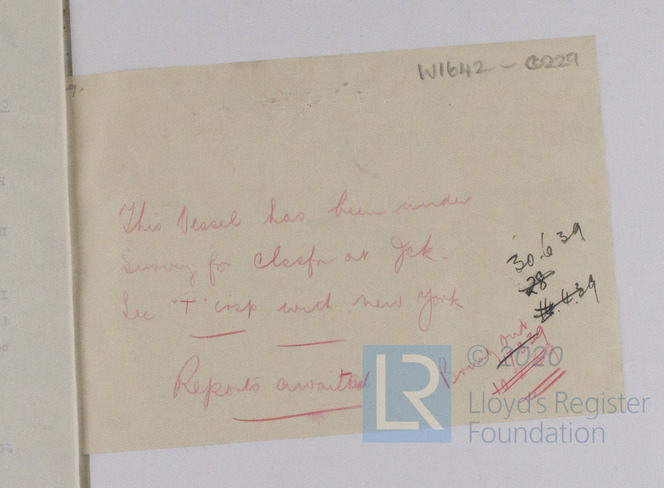 W1642 - 0229
This Vessel has been under
Survey for Clssfn at Jck.
See 'T' crsp with New York
Reports awaited
30.6.39
28
4.39
LR
© 2020
Lloyd's Register
Foundation